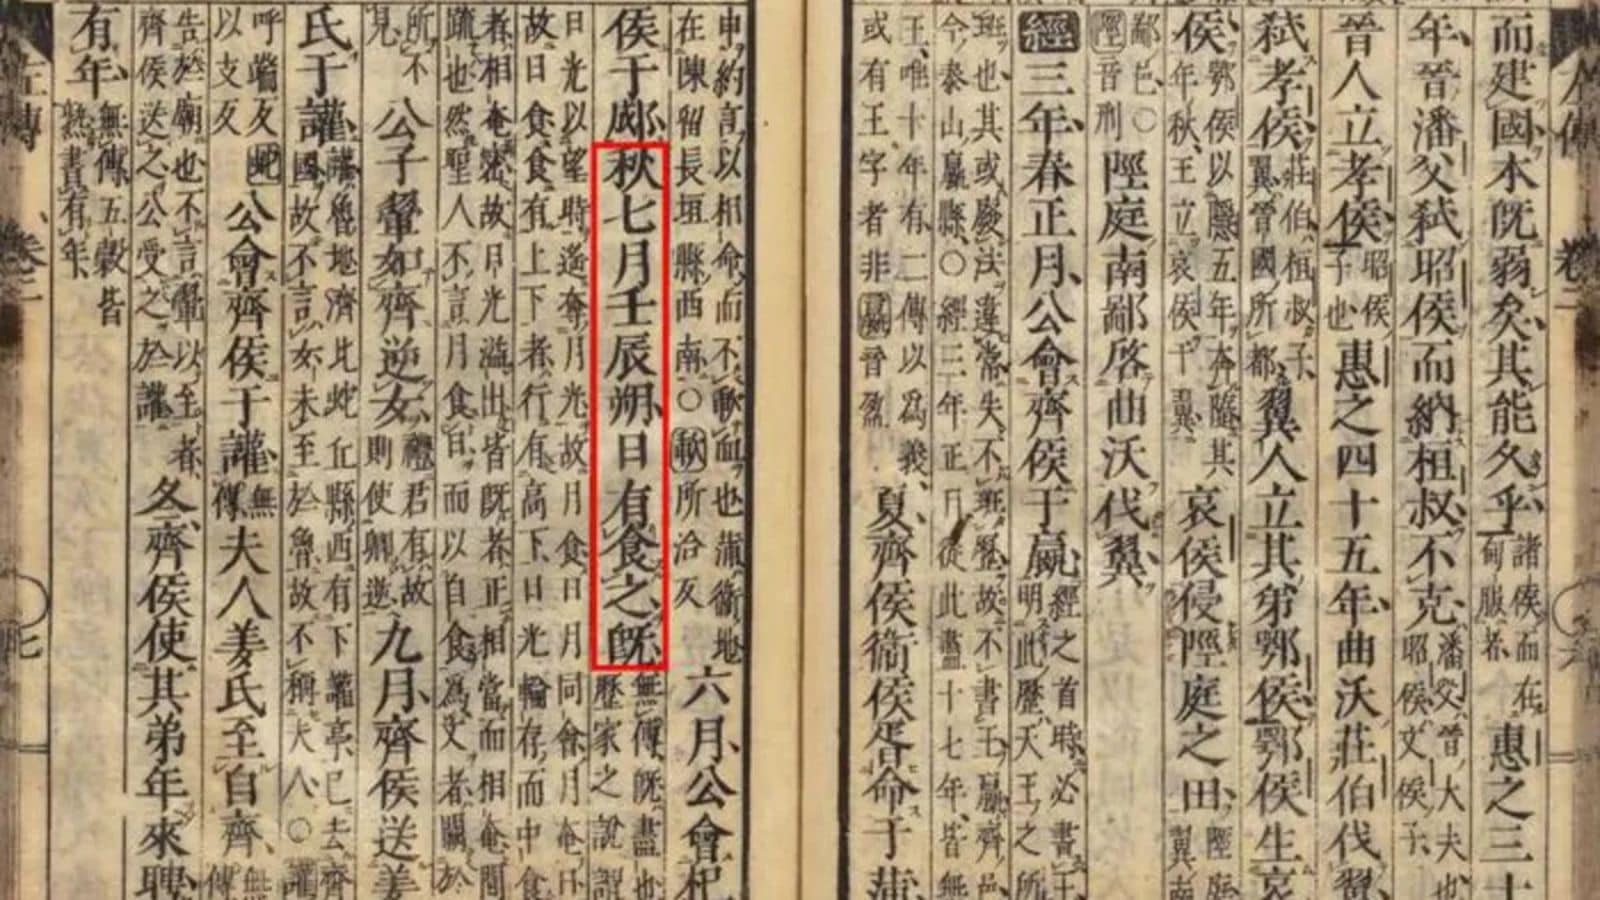 而建國本既弱矣其能久乎諸侯而在甸服者惠之三十
年晉潘父弑昭侯而納桓叔不克潘父晉大夫也昭侯文侯子
晉人立孝侯昭侯子也惠之四十五年曲沃莊伯伐翼
弑孝侯莊伯桓叔子翼晉國所都翼人立其弟鄂侯鄂侯生哀
侯鄂侯以隱五年奔隨其年秋王立哀侯于翼哀侯侵陘庭之田陘庭翼南
鄙邑〇陘音刑陘庭南鄙啓曲沃伐翼
經三年春正月公會齊侯于嬴經之首時必書王明此歷天王之所
班也其或廢法違常失不班歷故不書王嬴齊邑今泰山嬴縣〇經三年正月從此盡十七年皆無
王唯十年有二傳以為義或有王字者非嬴音盈夏齊侯衞侯胥命于蒲
申約言以相命而不歃血也蒲衞地在陳留長垣縣西南〇歃所洽反六月公會杞
侯于郕秋七月壬辰朔日有食之既無傳既盡也歷家之說謂
日光以望時遙奪月光故月食日月同會月奄日故日食食有上下者行有高下日光輪存而中食
者相奄密故日光溢出皆既者正相當而相奄間疏也然聖人不言月食日而以自食為文者闕於
所不見公子翬如齊逆女禮君有故則使卿逆九月齊侯送姜
氏于讙讙魯地濟北蛇丘縣西有下讙亭已去齊國故不言女未至於魯故不稱夫人〇讙
呼端反蛇以支反公會齊侯于讙無傳夫人姜氏至自齊無傳
告於廟也不言翬以至者齊侯送之公受之於讙冬齊侯使其弟年來聘
有年無傳五穀皆熟書有年
左傳 七